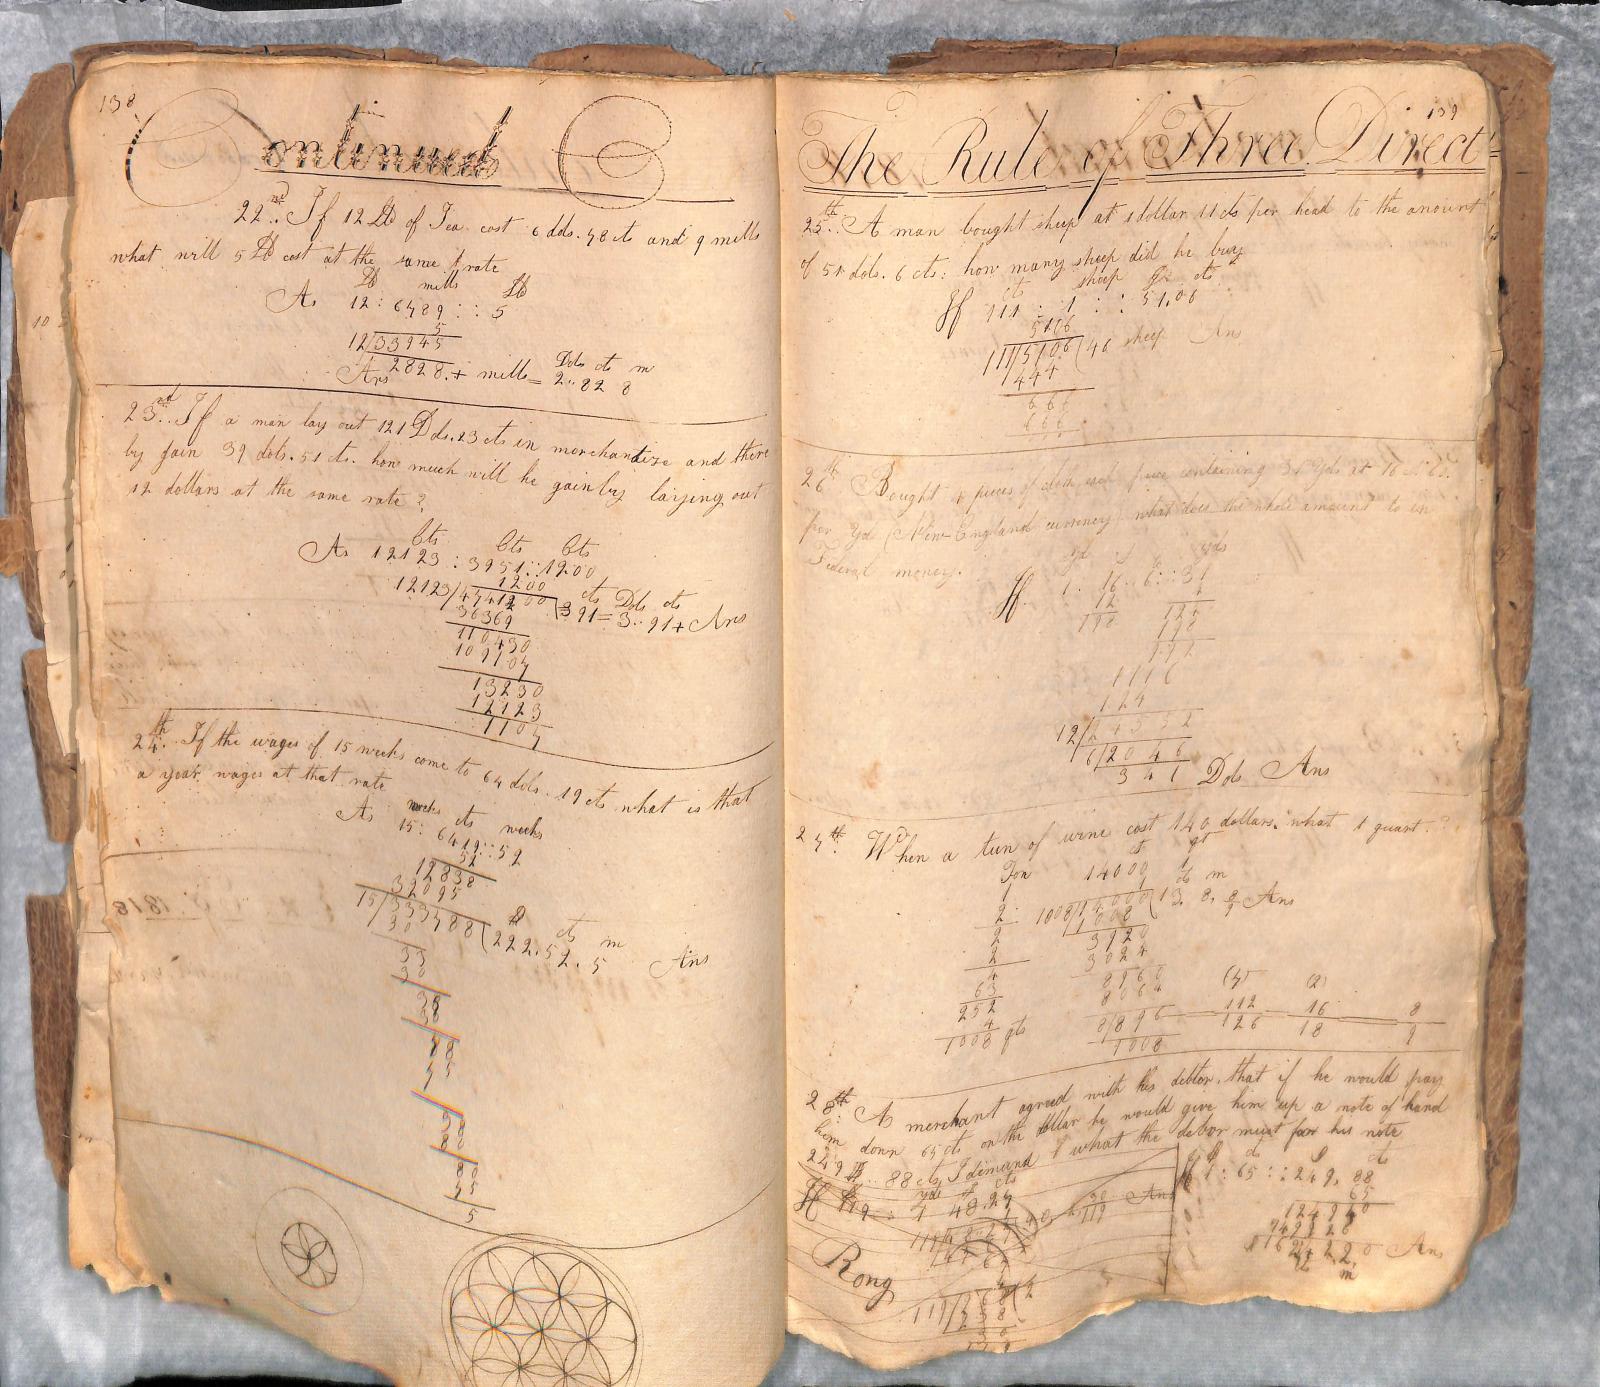 138
Continued C
22nd.. If 12 lb of Tea cost 6 dols. 78 cts and 9 mills
what will 5 lb cost at the same rate
lb mills lb
As 12 : 6789 : : 5
5
12/33945
2828.+ mills = Dols cts m
Ans 2.. 82 8
23rd.. If a man lay out 121 Dols. 23 cts in merchandize and there
by gain 39 dols. 51 cts. how much will he gain by laying out
12 dollars at the same rate?
Cts Cts Cts
As 12123 : 3951 :: 1200
1200
12123/4741200(391 = 3.. 91+ Ans
cts Dols cts
36369
110430
109107
13230
12123
1107
24th.. If the wages of 15 weeks come to 64 dols. 19 cts what is that
a year wages at that rate
weeks cts weeks
As 15 : 6419 :: 52
52
12838
32095
15/333788(222.52.5 Ans
cts m
30
33
30
38
30
78
75
38
30
80
75
5
139
The Rule of Three Direct
25th.. A man bought sheep at 1 dollar 11 cts per head to the amount
of 51 dols. 6 cts: how many sheep did he buy
ct sheep cts
If 111 : 1 : : 51,06
5106
111/5106(46 sheep Ans
444
666
666
26th Bought 4 pieces of cloth each piece containing 31 Yds at 16
per Yd (New-England currency) what does the whole amount to in
Federal money.
yd yds
If 1. 16.. 6 :: 31
12 4
198 124
198
1116
124
12/24552
6/2046
341 Dols Ans
27th. When a tun of wine cost 140 dollars. what 1 quart.?
Ton ct qt
1 14000 1
2 1008/14000(13. 8. 8/9 Ans
cts m
1008
2 3920
2 3024
4 8960
63 8064
252 (7) (2)
4 8/896 112 16 8
1008 qts 1008 126 18 9
28th. A merchant agreed with his debtor, that if he would pay
him down 65 cts on the dollar he would give him up a note of hand
249 .. 88 cts, I demand what the debor must pay for his note
If 1 : 65 : : 249, 88
65
124940
149928
Ans
m
yds cts
If 119 : 1 48.27
Ans
Rong